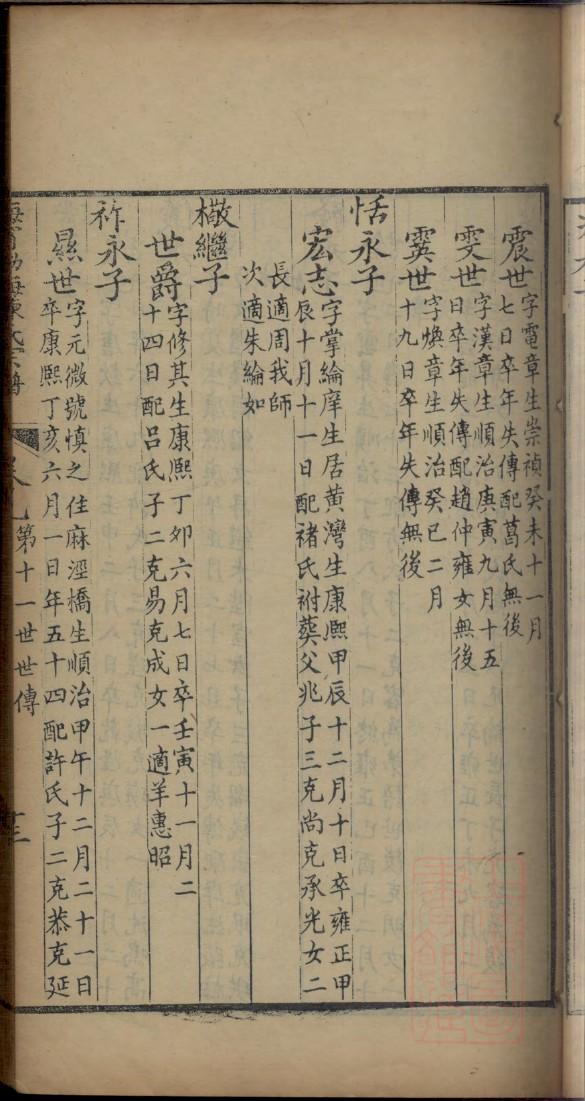 震世字電章生崇禎癸未十一月
七日卒年失傳配葛氏無後
雯世字漢章生順治庚寅九月十五
日卒年失傳配趙仲雍女無後
霙世字煥章生順治癸巳二月
十九日卒年失傳無後
恬永子
宏志字掌綸庠生居黃灣生康熙甲辰十二月十日卒雍正甲
辰十月十一日配褚氏祔葬父兆子三克尚克承光女二
長適周我師
次適朱綸如
檝繼子
世爵字修其生康熙丁卯六月七日卒壬寅十一月二
十四日配呂氏子二克易克成女一適羊惠昭
祚永子
㬎世字元微號慎之住麻涇橋生順治甲午十二月二十一日
卒康熙丁亥六月一日年五十四配許氏子二克恭克延
第十一世世傳
十三